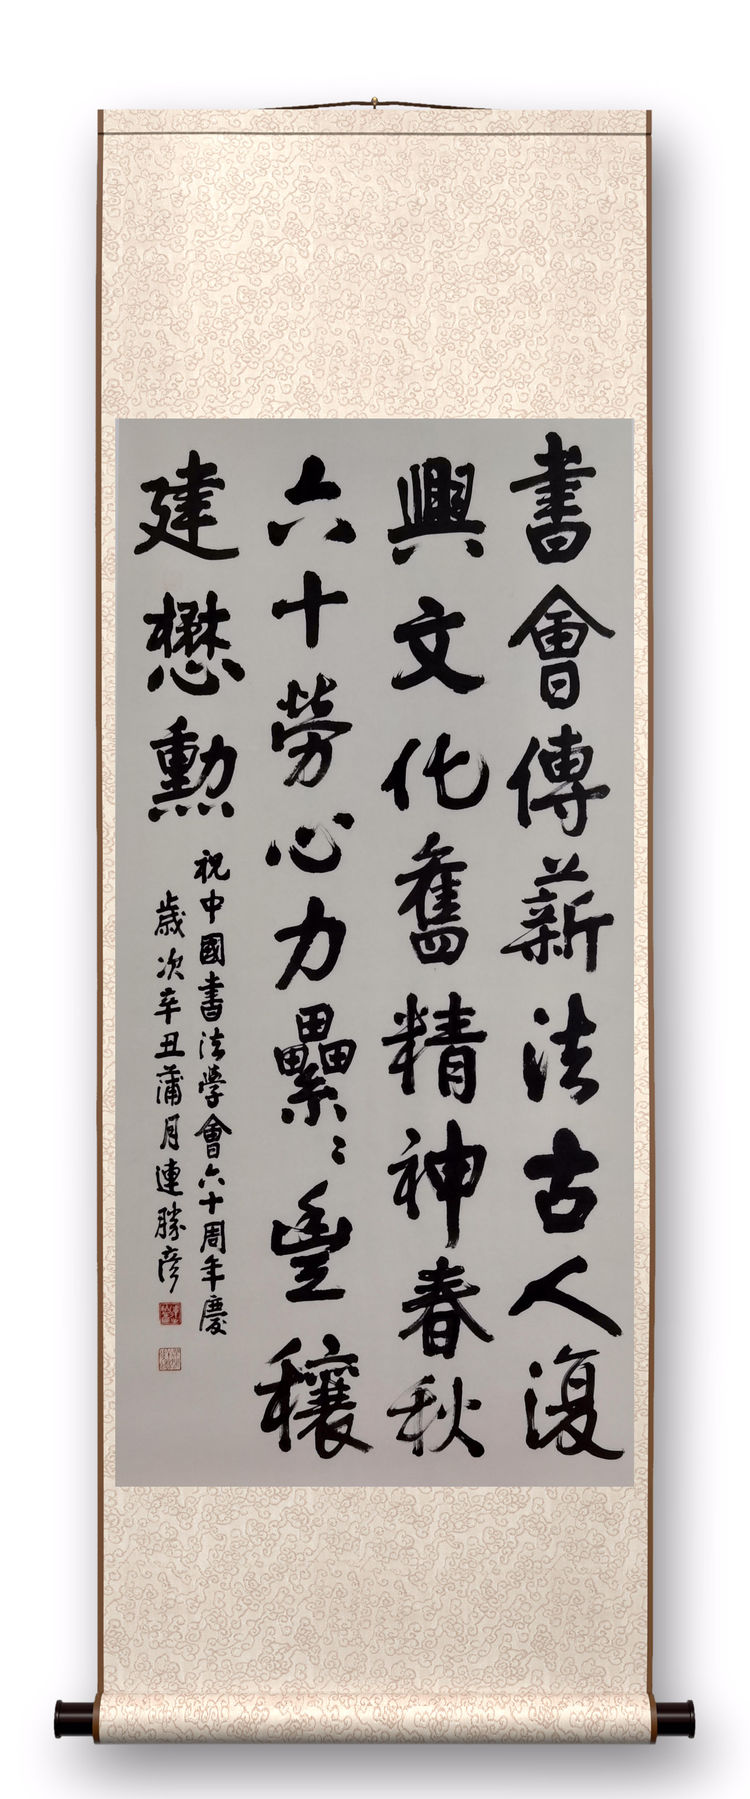 書會傳薪法古人復
興文化舊精神春秋
六十勞心力纍纍豐穰
建懋勳
祝中國書法學會六十周年慶
歲次辛丑蒲月連勝彥